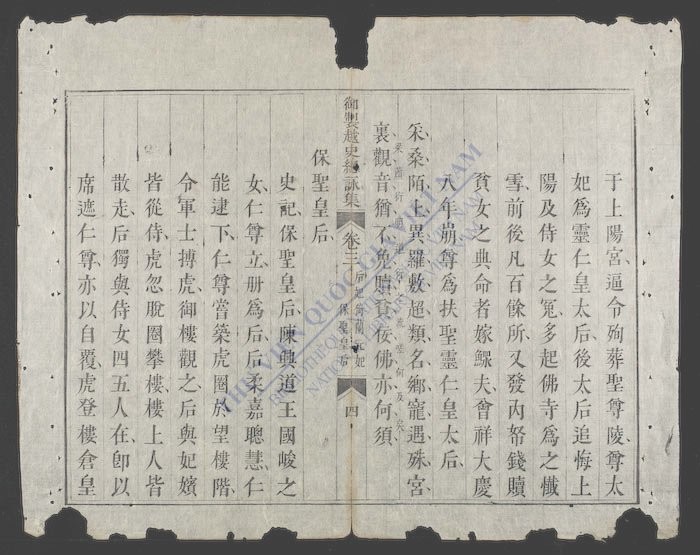 于上陽宮、逼令殉葬聖尊陵、尊太
妃爲靈仁皇太后、後太后追悔上
陽及侍女之冤、多起佛寺爲之懺
雪、前後凡百餘所、又發內帑錢贖
貧女之典命者嫁鰥夫、會祥大慶
八年崩、尊爲扶聖靈仁皇太后、
采桑陌上異羅敷、超類名鄉寵遇殊、宮
裏觀音猶不免、贖貧佞佛亦何須、
御製越史總詠集
卷三
后妃
倚蘭元妃
保聖皇后
四
保聖皇后、
史記、保聖皇后、陳興道王國峻之
女、仁尊立册爲后、后柔嘉聰慧、仁
能逮下、仁尊嘗築虎圈於望樓階、
令軍士搏虎、御樓觀之、后與妃嬪
皆從侍、虎忽脫圈攀樓、樓上人皆
散走、后獨與侍女四五人在、卽以
席遮仁尊、亦以自覆、虎登樓倉皇
THƯ VIỆN QUỐC GIA VIỆT NAM